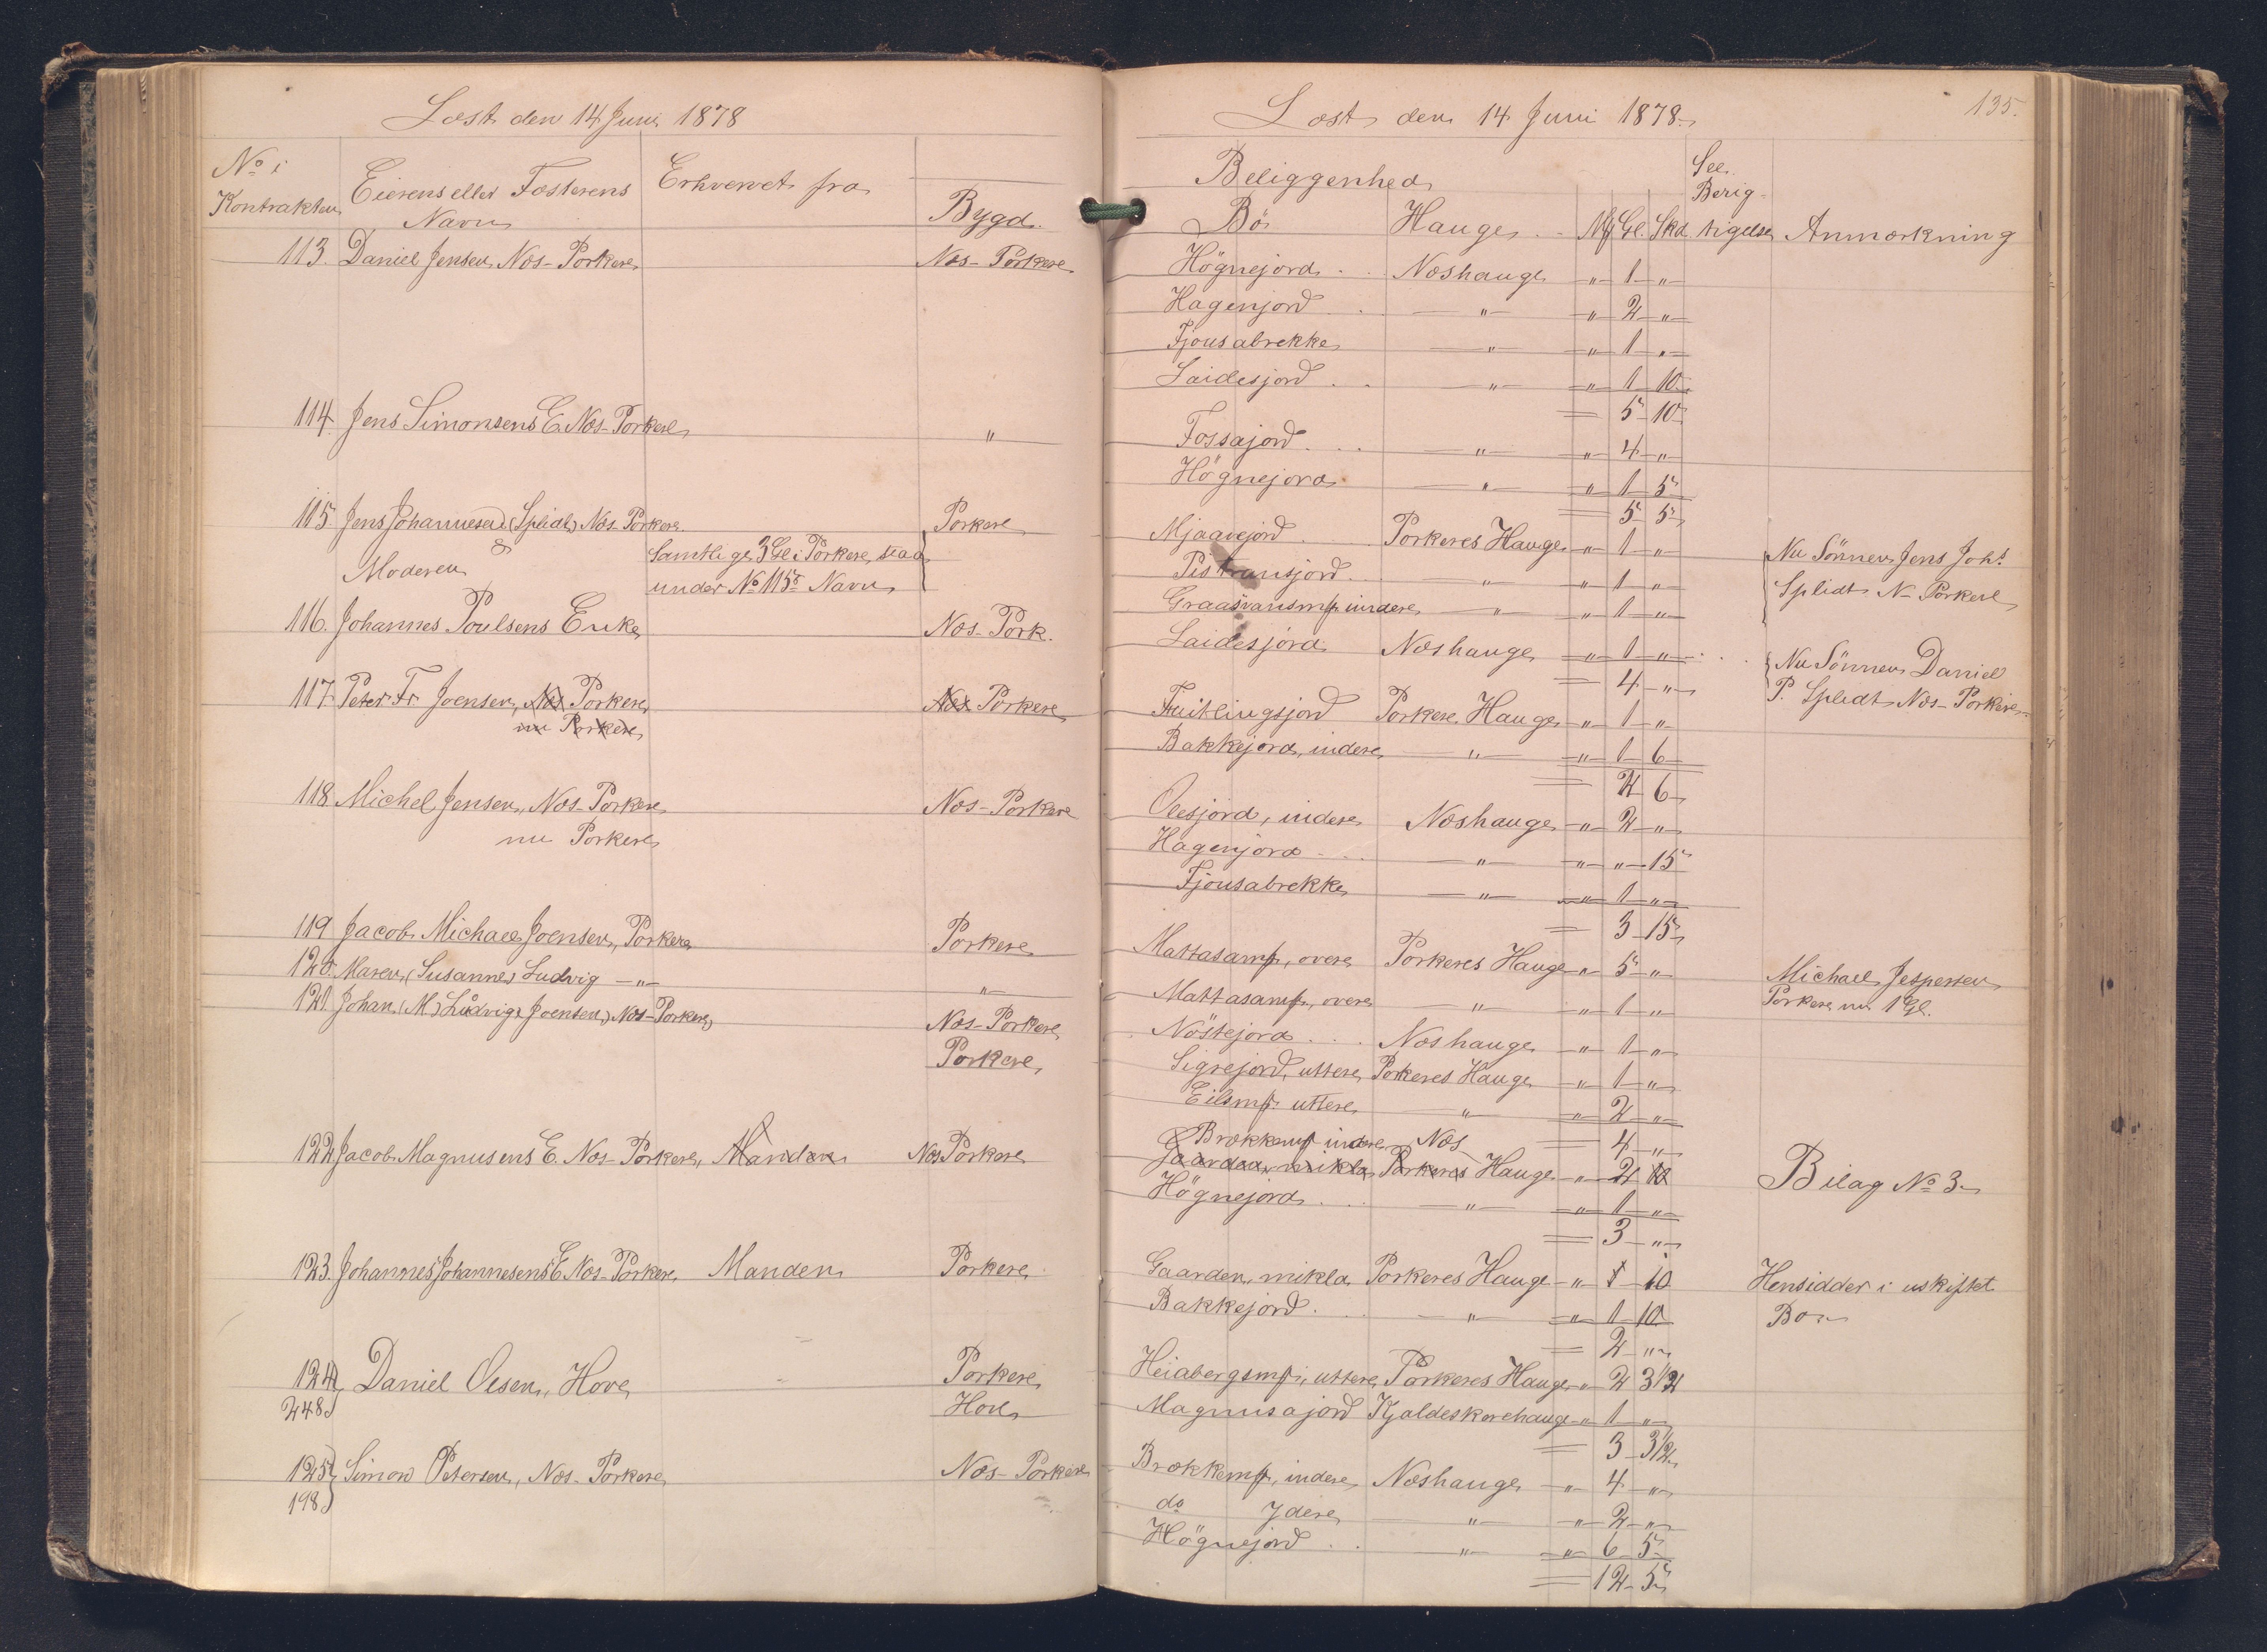 Læst den 14 Juni 1878
No i Kontrakten
Eierens eller Fæsterens Navn
Erhvervet fra
Bygd.
113. Daniel Jensen, Næs-Porkere Næs-Porkere
114. Jens Simonsens E. Næs-Porkere "
115. Jens Johannesen (Splidt) Næs-Porkere. Porkere
& Moderen
Samtlige 3 Gl i Porkere, staa
under No 115s Navn
116. Johannes Poulsens Enke Næs-Pork.
117. Peter Fr. Joensen, Næs Porkere Næs Porkere
nu Porkere
118. Michel Jensen, Næs-Porkere Næs-Porkere
nu Porkere
119 Jacob Michael Joensen, Porkere Porkere
120. Maren (Susanne) Ludvig — " — "
121. Johan (M.) Ludvig Joensen, Næs-Porkere Næs-Porkere
Porkere
122 Jacob Magnusens E. Næs-Porkere, Manden Næs Porkere
123. Johannes Johannesens E. Næs-Porkere, Manden Porkere
124 Daniel Olsen, Hove Porkere
248 Hove
125 Simon Petersen, Næs-Porkere Næs-Porkere
198
135.
Læst den 14 Juni 1878
Beliggenhed
Bö Hauge Mk Gl. Skd.
See Berigtigelse
Anmærkning
Högnejord . . Næshauge " 1 "
Hagenjord . . " " 2 "
Fjousabrekke " " 1 "
Laidesjord . . " " 1 10
= 5 10
Fossajord . . . " " 4 "
Högnejord " " 1 5
= 5 5
Mjaavejord . Porkeres Hauge " 1 " Nu Sönnen Jens Johs
jord . . " " 1 " Splidt N-Porkere
indere " " 1 "
Laidesjord Næshauge " 1 " . . Nu Sönnen Daniel
= 4 " P. Splidt Næs-Porkere
Fruitlingsjord Porkere Hauge " 1 "
Bakkejord, indere " " 1 6
= 2 6
Olesjord, indere Næshauge " 2 "
Hagenjord . . " " " 15
Fjousabrekke " " 1 "
= 3 15
Mattasamp, overe Porkeres Hauge " 5 " Michael Jespersen
Mattasamp, overe " " 1 " Porkere nu 1 Gl.
Nöstejord . . . Næshauge " 1 "
Sigrejord, uttere Porkeres Hauge " 1 "
Eilsmp. uttere " " 2 "
= 4 "
Brokkemp indere Næs
Gaarden, mikla Porkeres Hauge " 2 10 Bilag No 3
Högnejord . . . " " 1 "
= 3 "
Gaarden, mikla Porkeres Hauge " 1 10 Hensidder i uskiftet
Bakkejord . . . " " 1 10 Bo
= 2 "
Heiabergsmp, uttere Porkeres Hauge " 2 3 1/2
Magnusajord Kjaldeskorehauge " 1 "
= 3 3 1/2
Brokkemp, indere Næshauge " 4 "
do Ydere " " 2 "
Högnejord . . " " 6 5
= 12 5